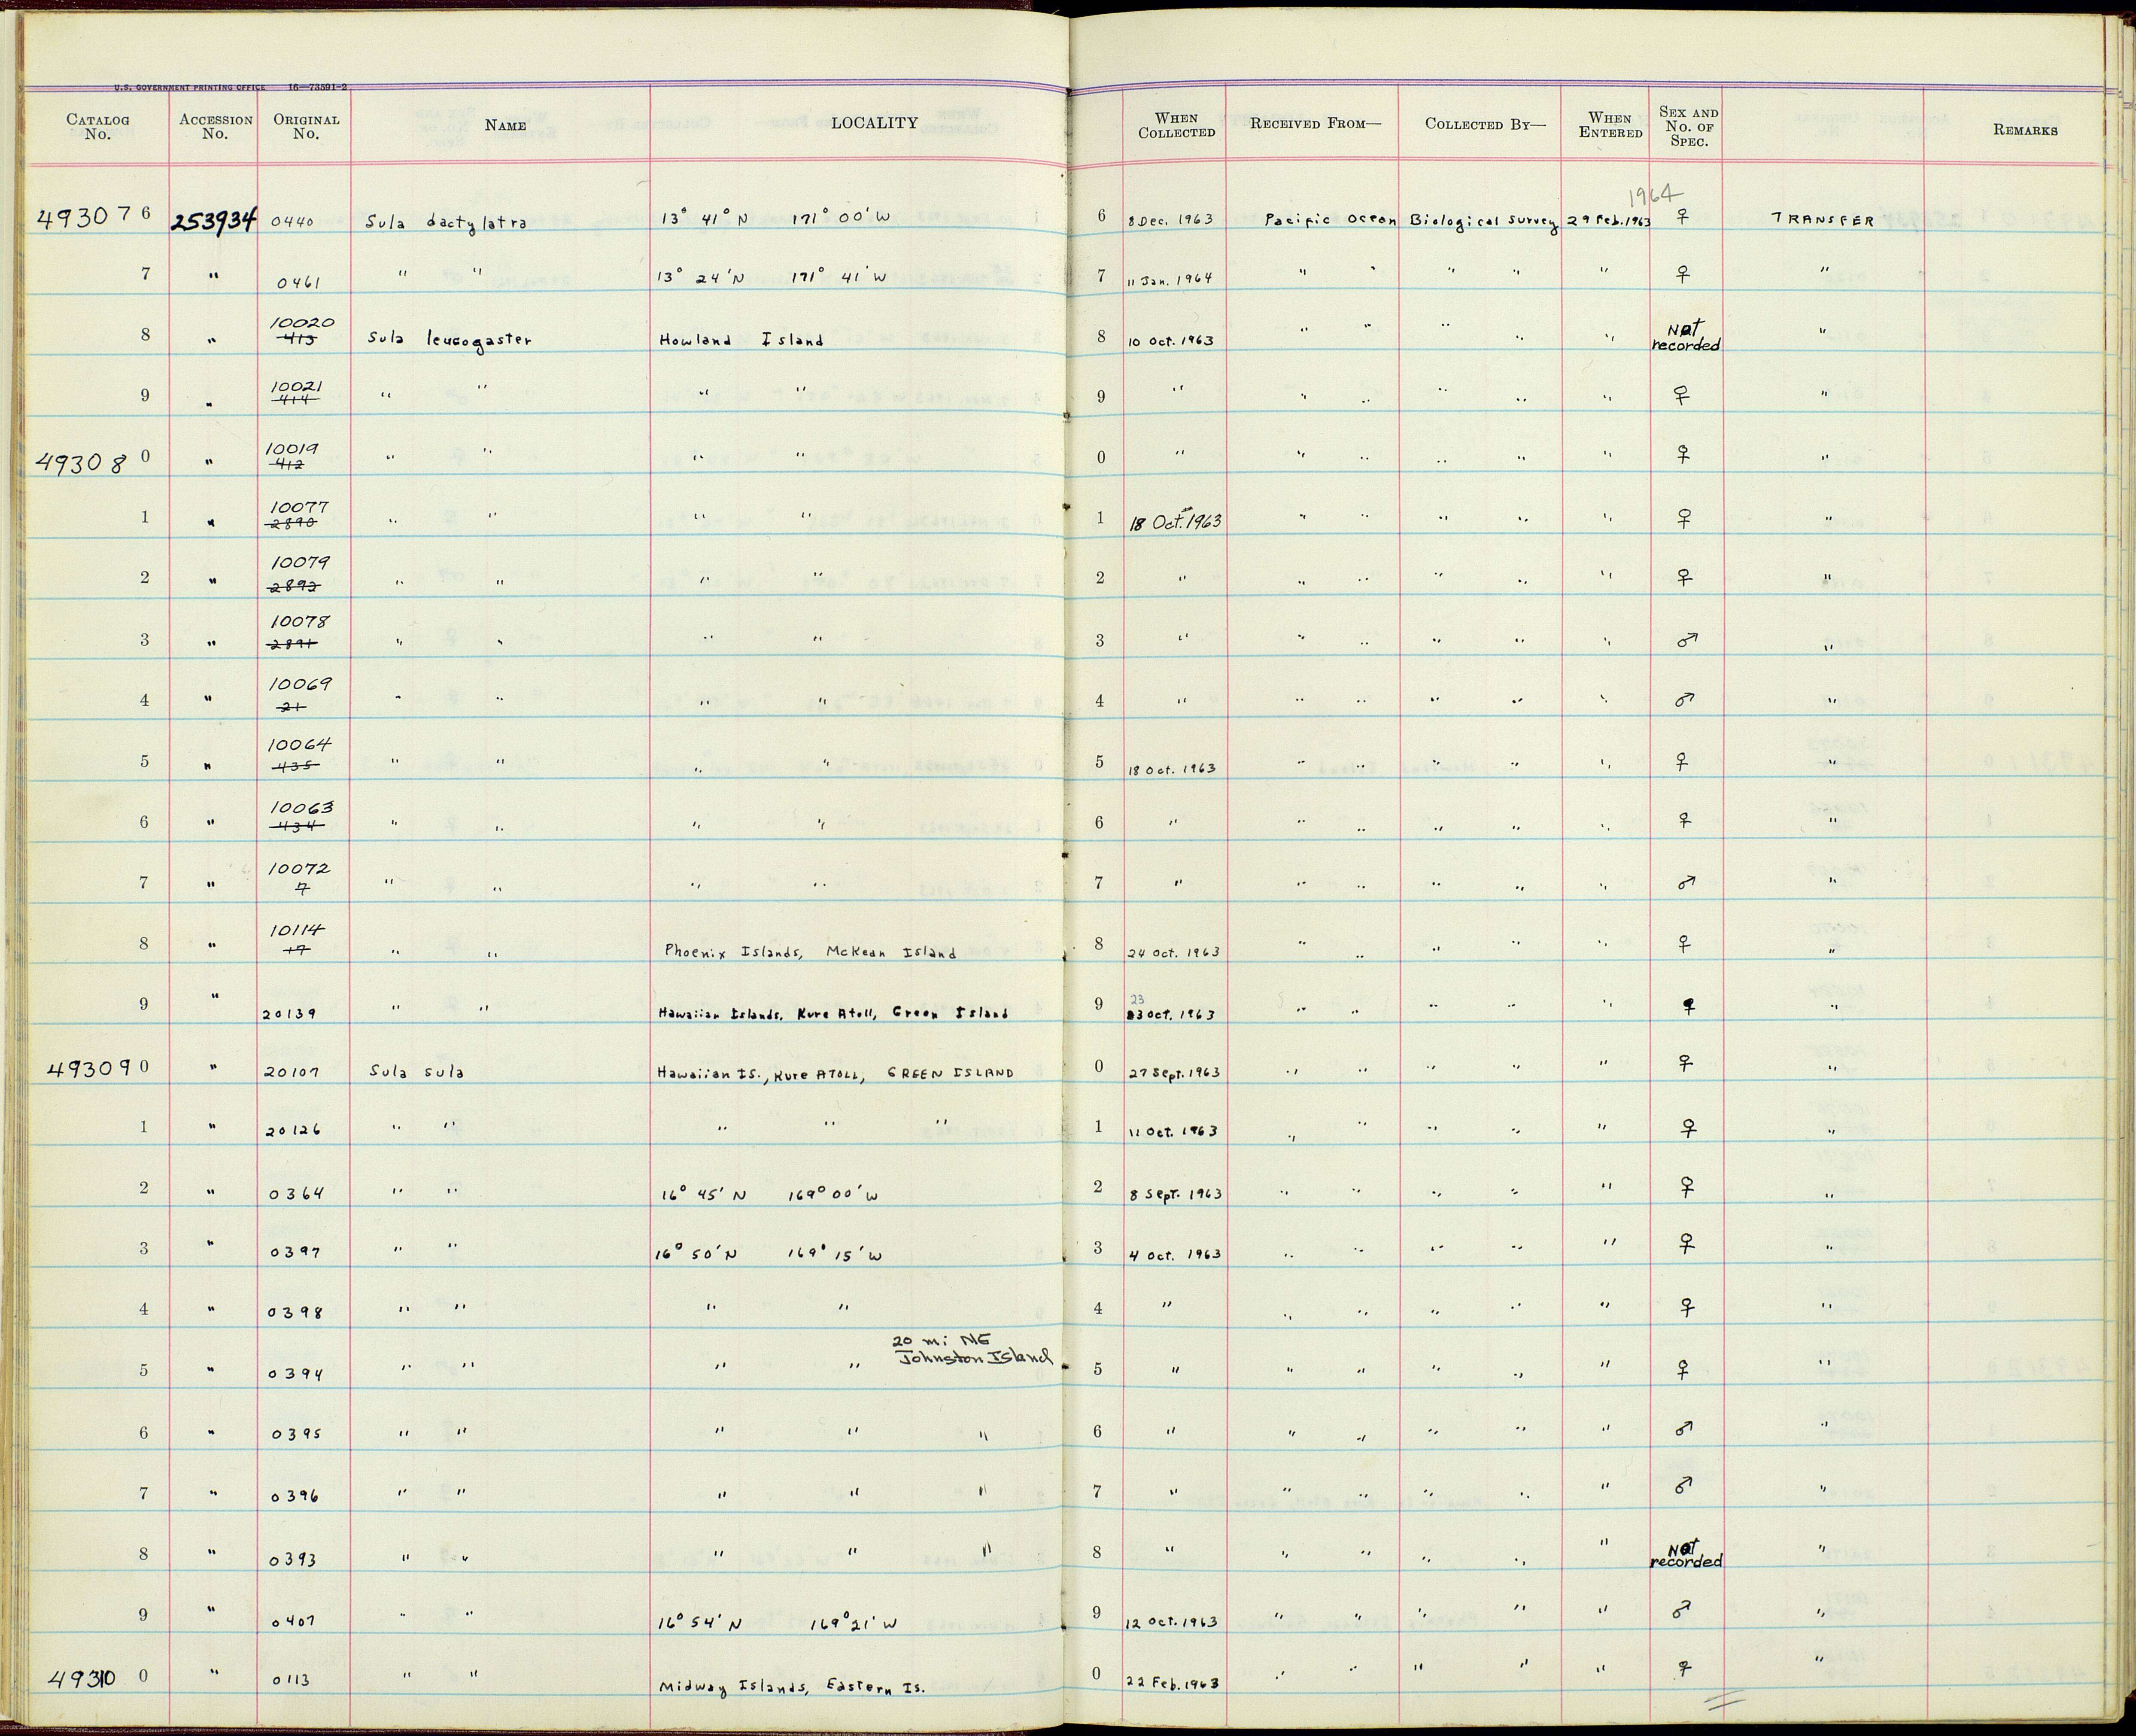 U.S. GOVERNMENT PRINTING OFFICE 16—73591-2
CATALOG No. ACCESSION No. ORIGINAL No. NAME LOCALITY WHEN COLLECTED RECEIVED FROM— COLLECTED BY— WHEN ENTERED SEX AND No. OF SPEC. REMARKS
1964
493076 253934 0440 Sula dactylatra 13° 41° N 171° 00' W 6 8 Dec. 1963 Pacific Ocean Biological Survey 29 Feb. 1963 ♀ TRANSFER
7 " 0461 " " 13° 24' N 171° 41' W 7 11 Jan. 1964 " " " " " ♀ "
8 " 10020 413 Sula leucogaster Howland Island 8 10 Oct. 1963 " " " " " Not recorded "
9 " 10021 414 " " " " 9 " " " " " " ♀ "
493080 " 10019 412 " " " " 0 " " " " " " ♀ "
1 " 10077 2890 " " " " 1 18 Oct. 1963 " " " " " ♀ "
2 " 10079 2892 " " " " 2 " " " " " " ♀ "
3 " 10078 2891 " " " " 3 " " " " " " ♂ "
4 " 10069 21 " " " " 4 " " " " " " ♂ "
5 " 10064 435 " " " " 5 18 Oct. 1963 " " " " " ♀ "
6 " 10063 434 " " " " 6 " " " " " " ♀ "
7 " 10072 7 " " " " 7 " " " " " " ♂ "
8 " 10114 17 " " Phoenix Islands, McKean Island 8 24 Oct. 1963 " " " " " ♀ "
9 " 20139 " " Hawaiian Islands, Kure Atoll, Green Island 9 23 Oct. 1963 " " " " " ♀ "
493090 " 20107 Sula sula Hawaiian Is., Kure ATOLL, GREEN ISLAND 0 27 Sept. 1963 " " " " " ♀ "
1 " 20126 " " " " " 1 11 Oct. 1963 " " " " " ♀ "
2 " 0364 " " 16° 45' N 169° 00' W 2 8 Sept. 1963 " " " " " ♀ "
3 " 0397 " " 16° 50' N 169° 15' W 3 4 Oct. 1963 " " " " " ♀ "
4 " 0398 " " " " 4 " " " " " " ♀ "
20 mi NE
Johnston Island
5 " 0394 " " " " 5 " " " " " " ♀ "
6 " 0395 " " " " " 6 " " " " " " ♂ "
7 " 0396 " " " " " 7 " " " " " " ♂ "
8 " 0393 " " " " " 8 " " " " " " Not recorded "
9 " 0407 " " 16° 54' N 169° 21' W 9 12 Oct. 1963 " " " " " ♂ "
493100 " 0113 " " Midway Islands, Eastern Is. 0 22 Feb. 1963 " " " " " ♀ "